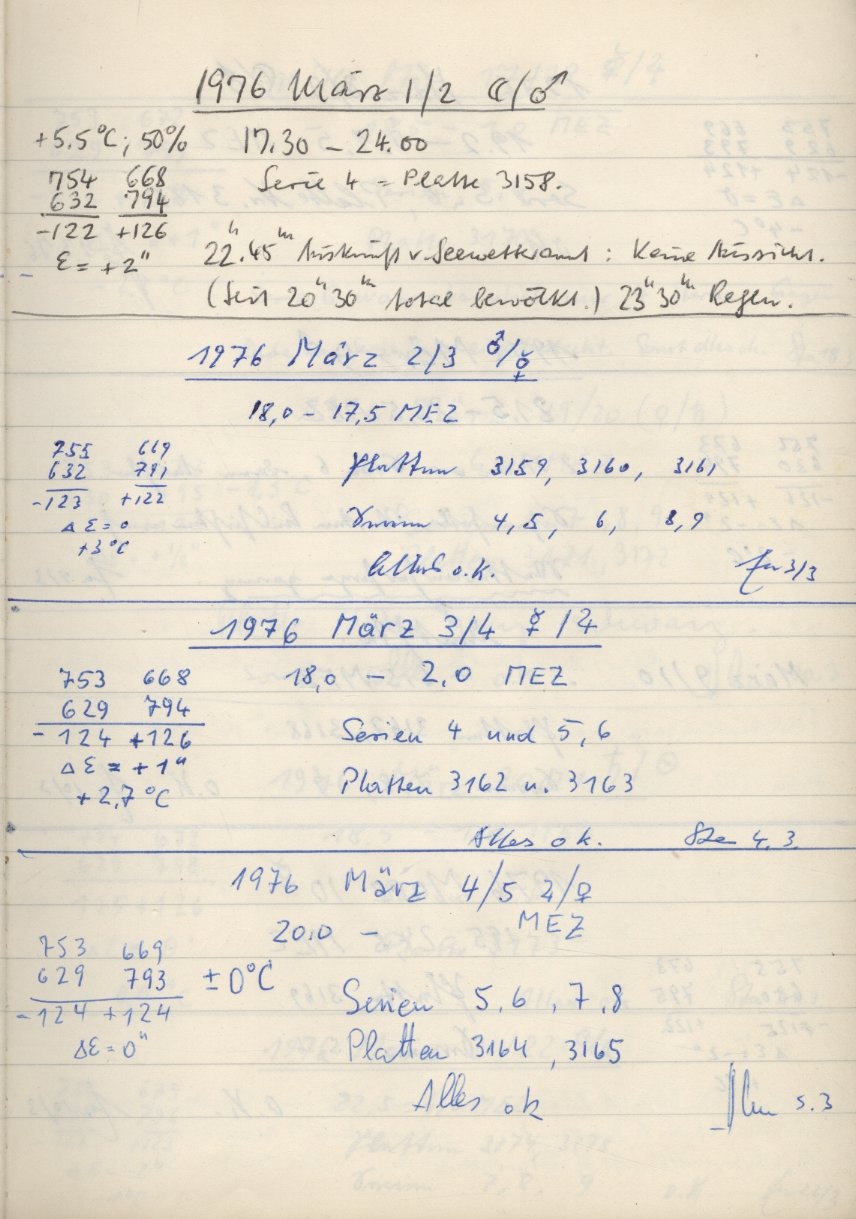 1976 März 1/2 ☾/♂
+5.5°C; 50% 17.30 – 24.00
754 668 Serie 4 = Platte 3158.
632 794
-122 +126
ε = +2" 22ʰ.45ᵐ Auskunft v. Seewetteramt: Keine Aussicht.
(Seit 20ʰ30ᵐ total bewölkt.) 23ʰ30ᵐ Regen.
1976 März 2/3 ♂/☿
18,0 – 17,5 MEZ
755 669
632 791 Platten 3159, 3160, 3161
-123 +122
Δε = 0 Serien 4,5, 6, 8,9
+3°C
Alles o.K. 3/3
1976 März 3/4 ☿/♃
753 668 18,0 – 2.0 MEZ
629 794
-124 +126 Serien 4 und 5,6
Δε = +1"
+2,7°C Platten 3162 u. 3163
Alles ok. 4.3.
1976 März 4/5 ♃/♀
20.0 – MEZ
753 669
629 793 ±0°C
-124 +124 Serien 5,6, 7,8
Δε = 0" Platten 3164, 3165
Alles ok 5.3